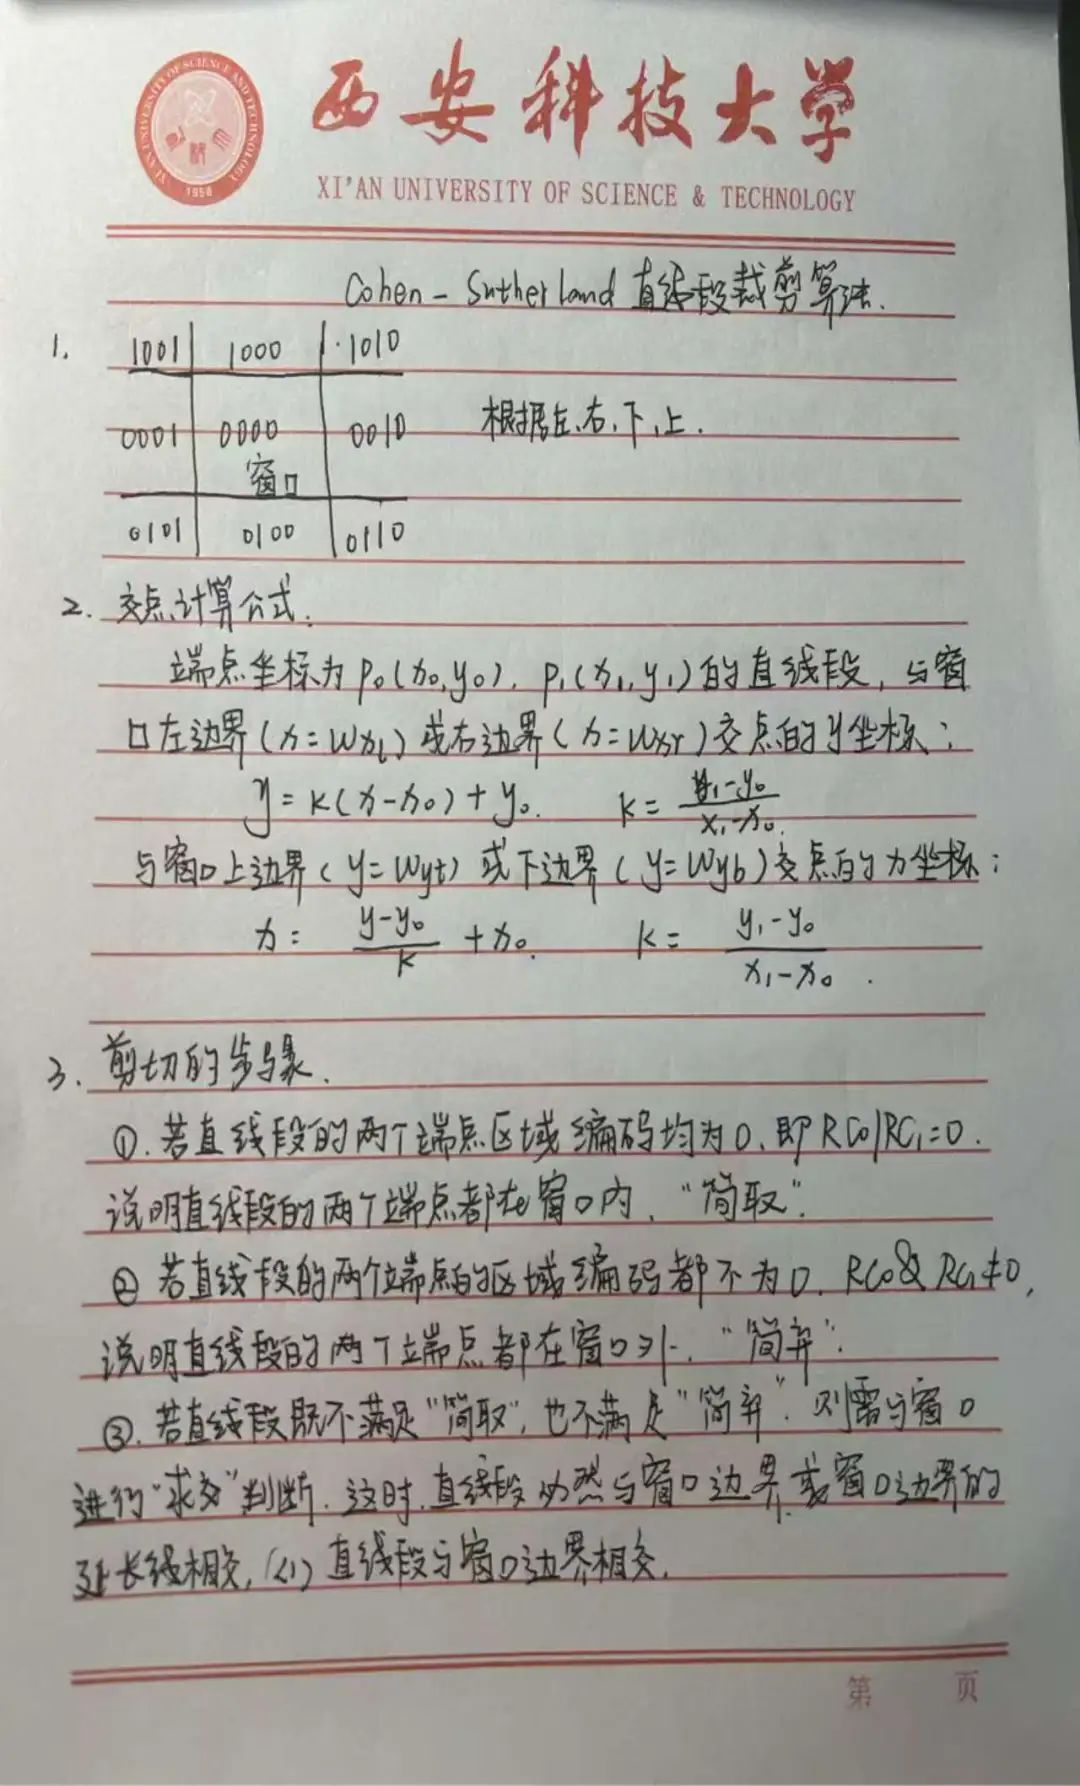 西安科技大学
XI'AN UNIVERSITY OF SCIENCE & TECHNOLOGY
XI'AN UNIVERSITY OF SCIENCE AND TECHNOLOGY
1958
Cohen-Sutherland 直线段裁剪算法.
1. 1001 1000 1010
0001 0000 0010 根据左、右、下、上.
窗口
0101 0100 0110
2. 交点计算公式:
端点坐标为P₀(x₀,y₀), P₁(x₁,y₁)的直线段, 与窗
口左边界(x=Wxl)或右边界(x=Wxr)交点的y坐标:
y=k(x-x₀)+y₀. k=(y₁-y₀)/(x₁-x₀).
与窗口上边界(y=Wyt)或下边界(y=Wyb)交点的x坐标:
x=(y-y₀)/k+x₀. k=(y₁-y₀)/(x₁-x₀).
3. 剪切的步骤.
①. 若直线段的两个端点区域编码均为0, 即RC₀|RC₁=0.
说明直线段的两个端点都在窗口内, “简取”.
② 若直线段的两个端点的区域编码都不为0, RC₀&RC₁≠0,
说明直线段的两个端点都在窗口外. “简弃”.
③. 若直线段既不满足“简取”, 也不满足“简弃”. 则需与窗口
进行“求交”判断. 这时, 直线段必然与窗口边界或窗口边界的
延长线相交, <1> 直线段与窗口边界相交.
第 页